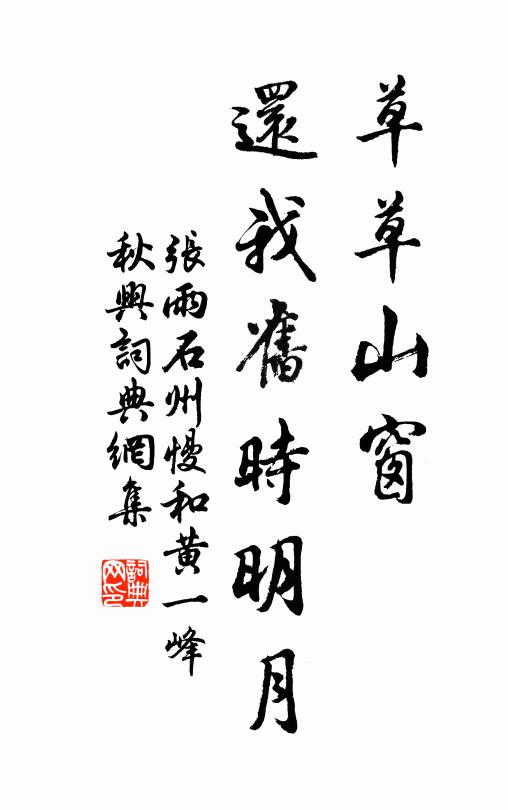 草草山窗
還我舊時明月
張雨石州慢和黃一峰
秋興詞典網集
詞典网印